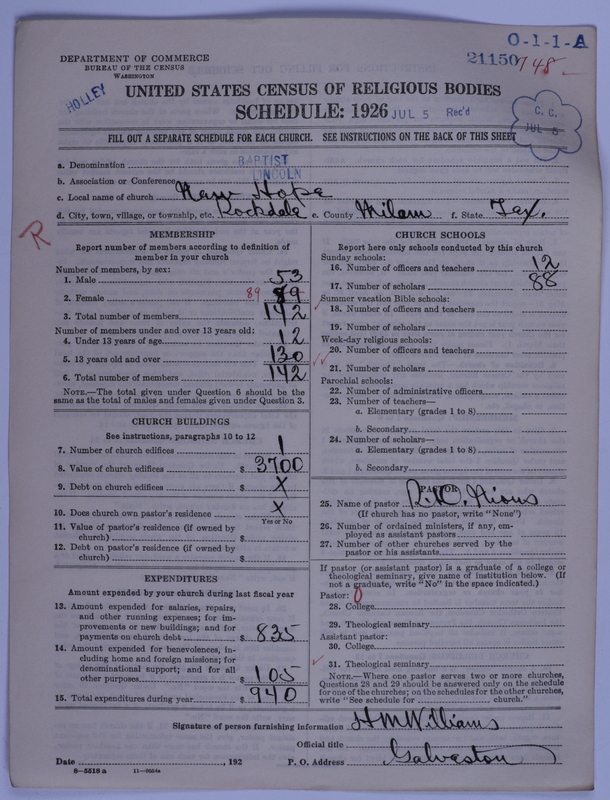 O-1-1-A
DEPARTMENT OF COMMERCE
BUREAU OF THE CENSUS
WASHINGTON
21150 748
HOLLEY
UNITED STATES CENSUS OF RELIGIOUS BODIES
SCHEDULE: 1926 JUL 5 Rec'd
C. C.
JUL 5
FILL OUT A SEPARATE SCHEDULE FOR EACH CHURCH. SEE INSTRUCTIONS ON THE BACK OF THIS SHEET
a. Denomination BAPTIST
b. Association or Conference LINCOLN
c. Local name of church New Hope
d. City, town, village, or township, etc. Rockdale e. County Milam f. State Tex.
R
MEMBERSHIP
Report number of members according to definition of
member in your church
Number of members, by sex:
1. Male 53
2. Female 89 89
3. Total number of members 142
Number of members under and over 13 years old:
4. Under 13 years of age 12
5. 13 years old and over 130
6. Total number of members 142
NOTE.—The total given under Question 6 should be
same as the total of males and females given under Question 3.
CHURCH BUILDINGS
See instructions, paragraphs 10 to 12
7. Number of church edifices 1
8. Value of church edifices $ 3700
9. Debt on church edifices $ X
10. Does church own pastor's residence X
Yes or No
11. Value of pastor's residence (if owned by
church) $
12. Debt on pastor's residence (if owned by
church) $
EXPENDITURES
Amount expended by your church during last fiscal year
13. Amount expended for salaries, repairs,
and other running expenses; for im-
provements or new buildings; and for
payments on church debt $ 835
14. Amount expended for benevolences, in-
cluding home and foreign missions; for
denominational support; and for all
other purposes $ 105
15. Total expenditures during year $ 940
CHURCH SCHOOLS
Report here only schools conducted by this church
Sunday schools:
16. Number of officers and teachers 12
17. Number of scholars 88
Summer vacation Bible schools:
18. Number of officers and teachers
19. Number of scholars
Week-day religious schools:
20. Number of officers and teachers
21. Number of scholars
Parochial schools:
22. Number of administrative officers
23. Number of teachers—
a. Elementary (grades 1 to 8)
b. Secondary
24. Number of scholars—
a. Elementary (grades 1 to 8)
b. Secondary
PASTOR
25. Name of pastor
(If church has no pastor, write "None")
26. Number of ordained ministers, if any, em-
ployed as assistant pastors
27. Number of other churches served by the
pastor or his assistants
If pastor (or assistant pastor) is a graduate of a college or
theological seminary, give name of institution below. (If
not a graduate, write "No" in the space indicated.)
Pastor: 0
28. College
29. Theological seminary
Assistant pastor:
30. College
31. Theological seminary
NOTE.—Where one pastor serves two or more churches,
Questions 28 and 29 should be answered only on the schedule
for one of the churches; on the schedules for the other churches,
write "See schedule for church."
Signature of person furnishing information H M Williams
Official title
Date , 192 P. O. Address Galveston
8—5518 a 11—9554a